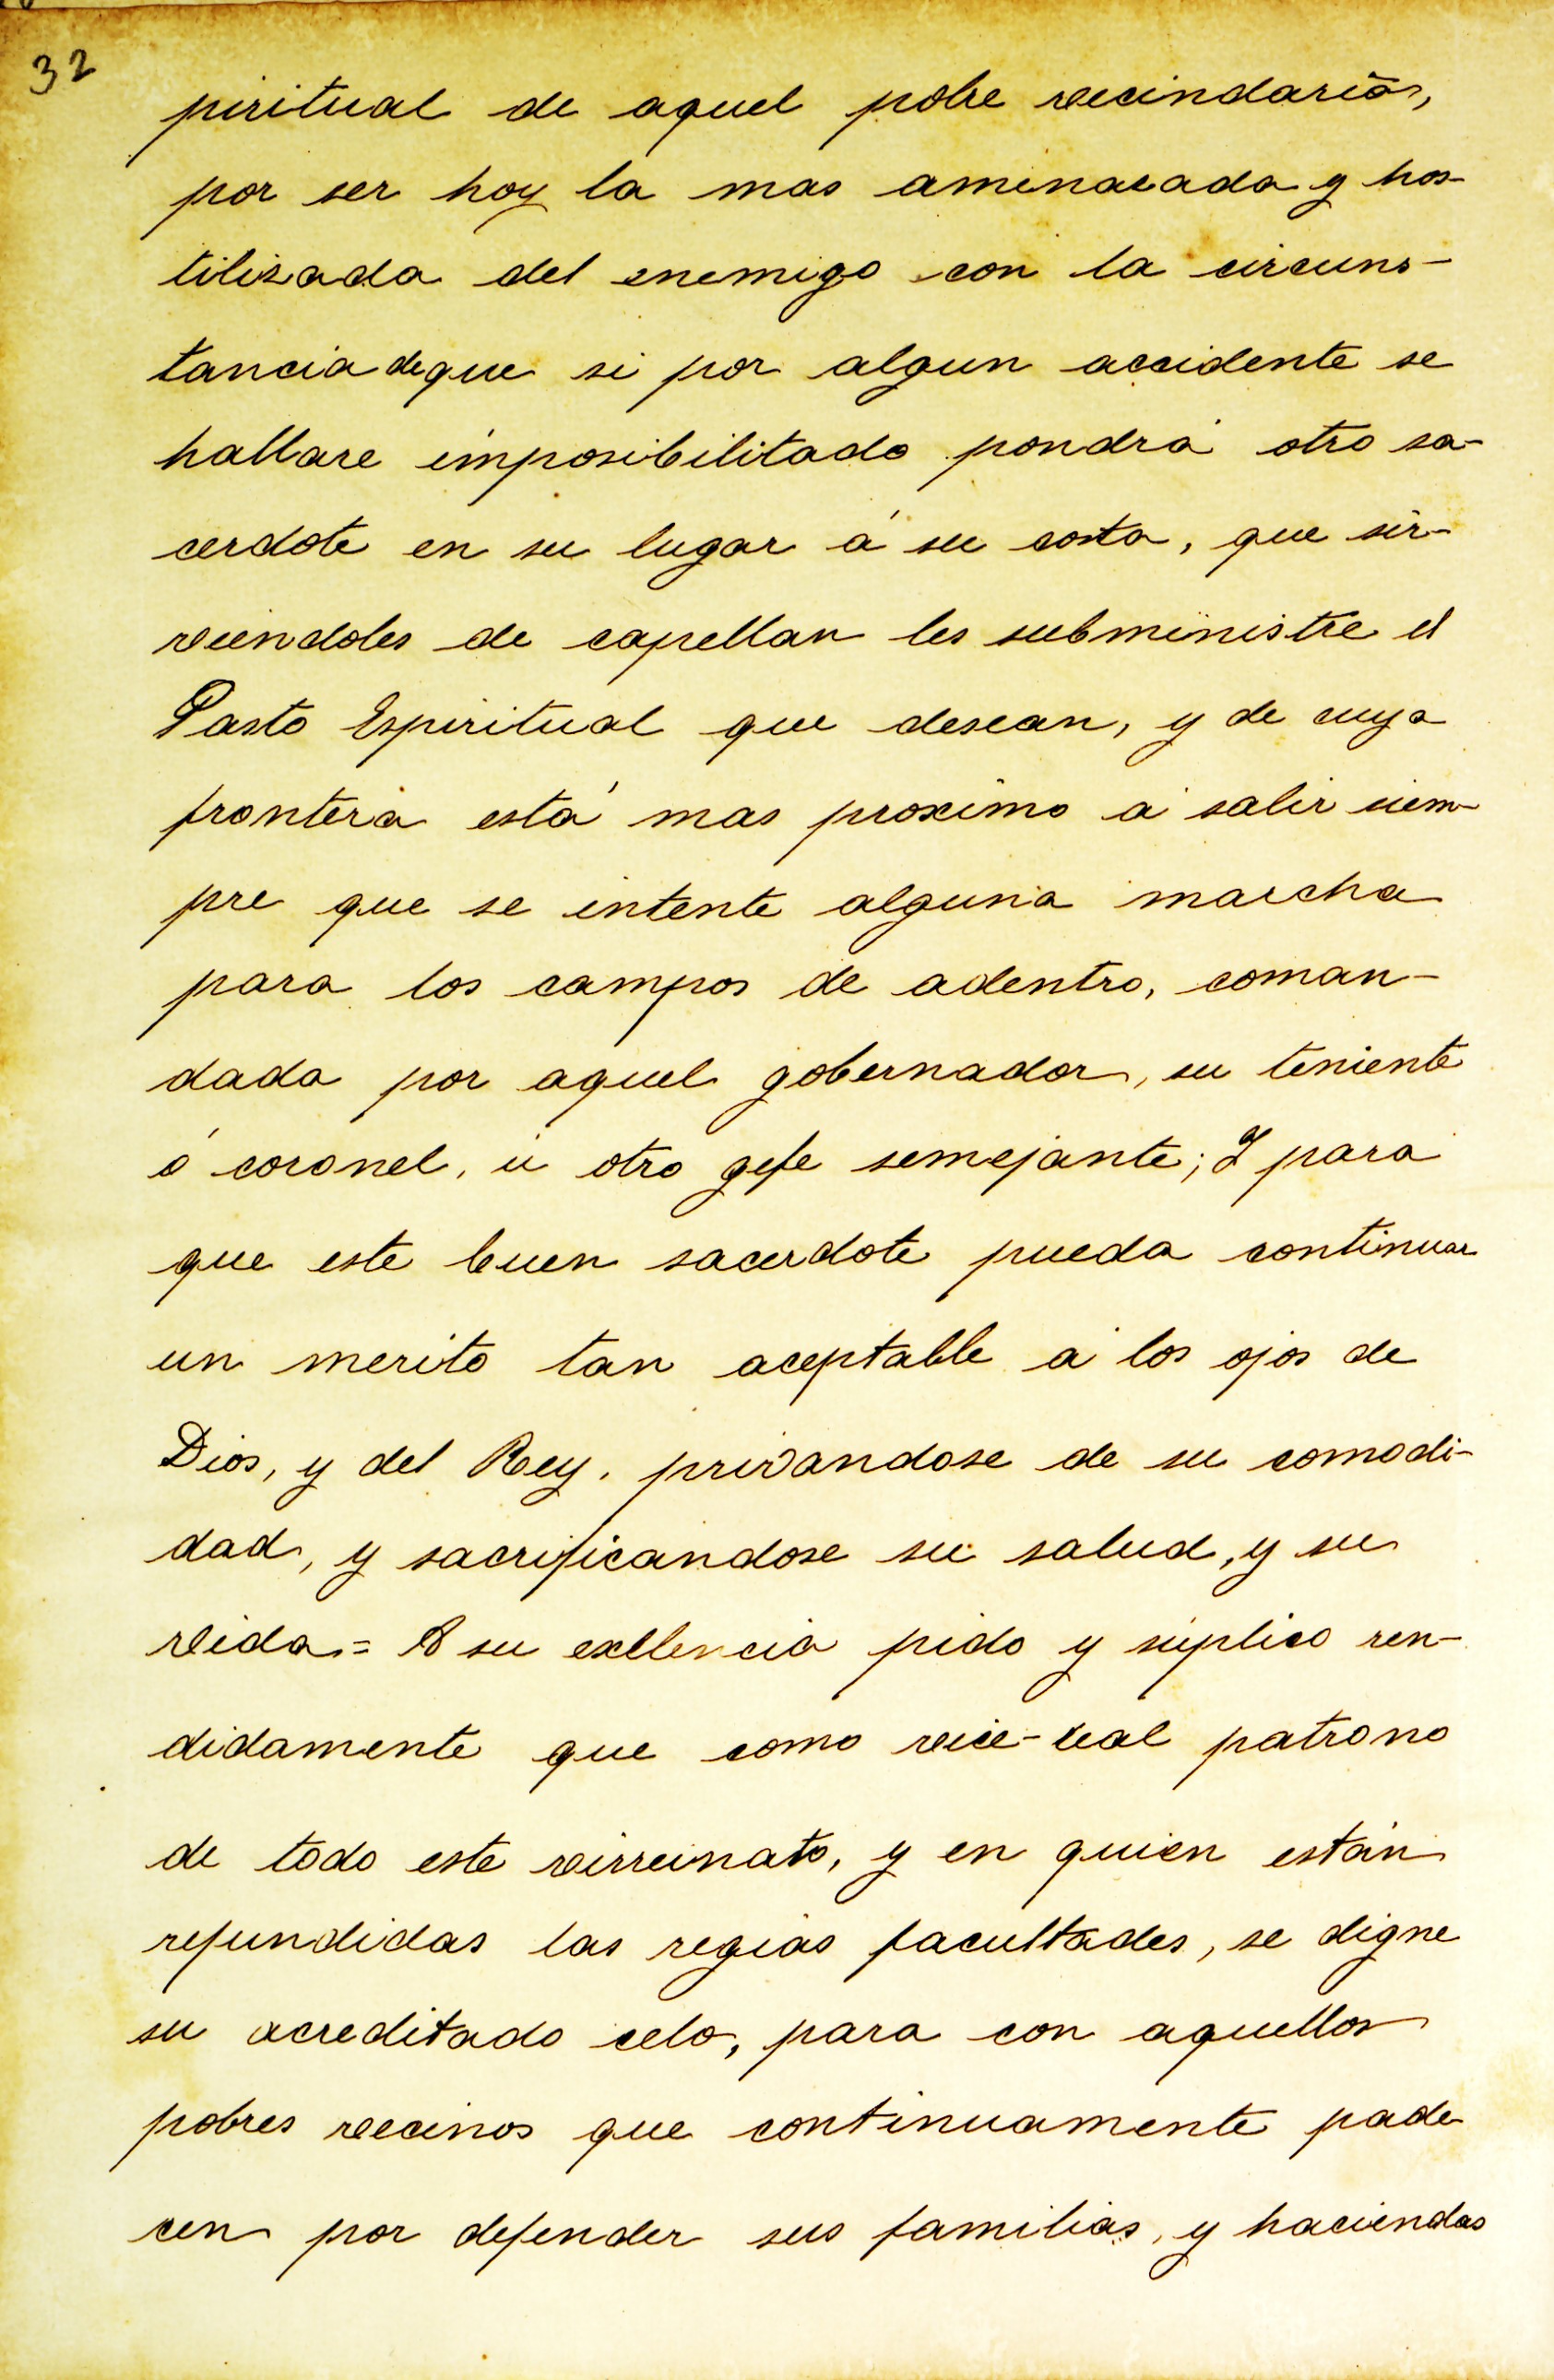 32
piritual de aquel pobre vecindario,
por ser hoy la mas amenacada y hos-
tilizada del enemigo con la circuns-
tancia deque si por algun accidente se
hallare imposibilitado pondrá otro sa-
cerdote en su lugar á su costa, que sir-
viendoles de capellan les subministre el
Pasto Espiritual que desean, y de cuya
frontera está mas proximo á salir siem-
pre que se intente alguna marcha
para los campos de adentro, coman-
dada por aquel gobernador, su teniente
ó coronel, ú otro gefe semejante; I para
que este buen sacerdote pueda continuar
un merito tan aceptable á los ojos de
Dios, y del Rey, privandose de su comodi-
dad, y sacrificandose su salud, y su
vida = A su exllencia pido y suplico ren-
didamente que como vice-real patrono
de todo este virreinato, y en quien están
refundidas las regias facultades, se digne
su acreditado celo, para con aquellos
pobres vecinos que continuamente pade
cen por defender sus familias, y haciendas